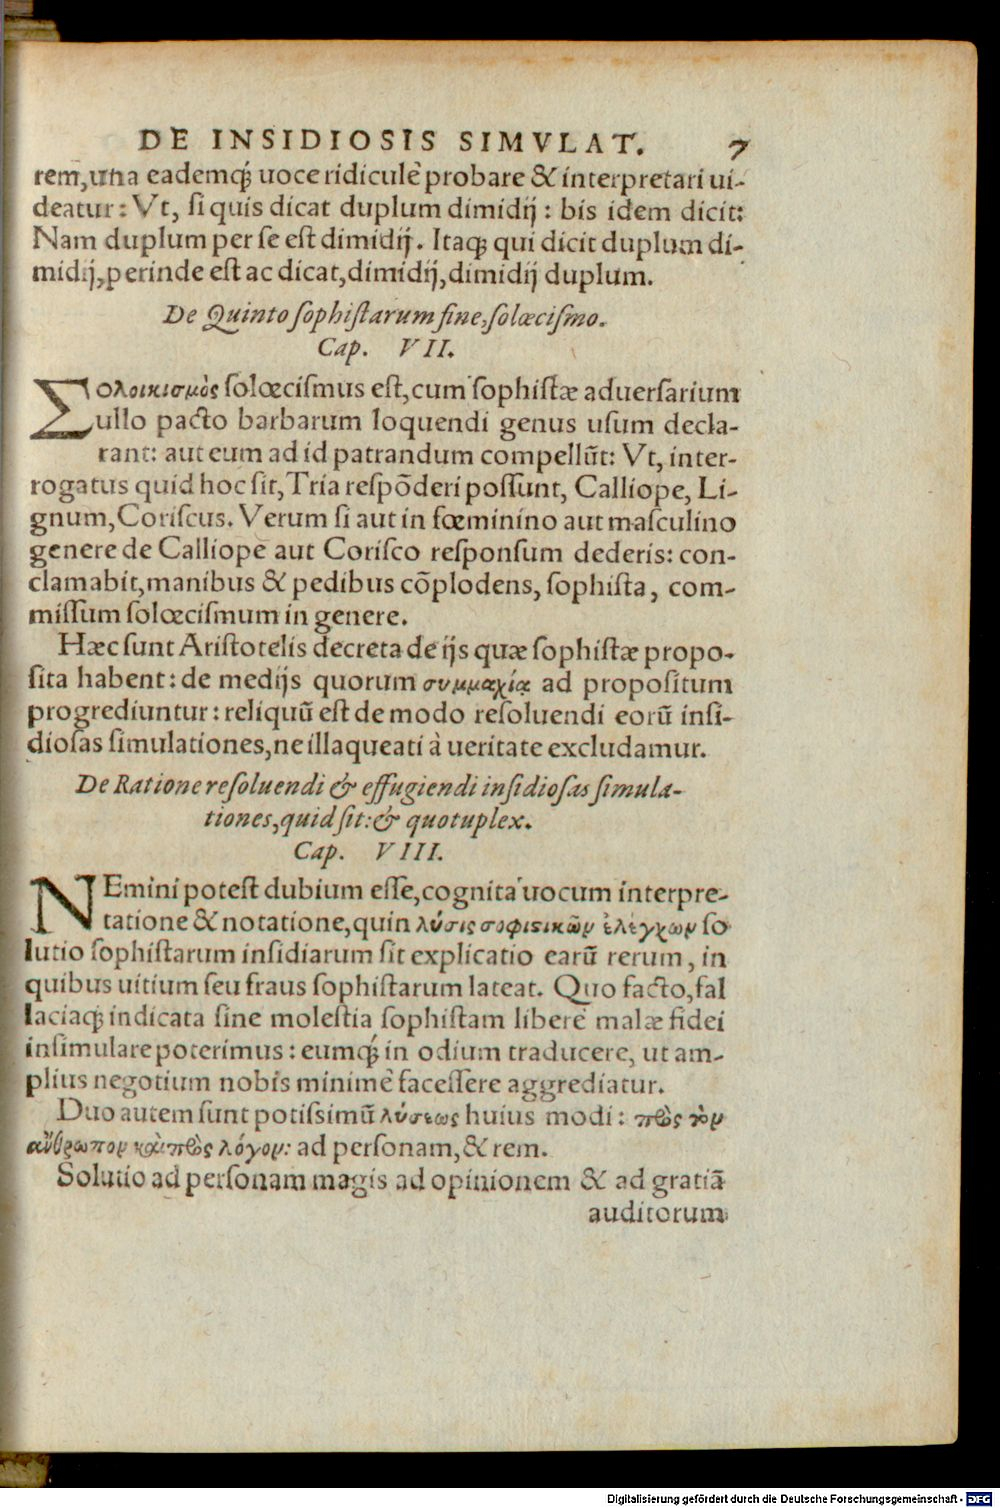 DE INSIDIOSIS SIMVLAT. 7
rem, una eademq́ꝫ uoce ridiculè probare & interpretari ui-
deatur: Vt, ſi quis dicat duplum dimidij: bis idem dicit:
Nam duplum per ſe eſt dimidij. Itaqꝫ qui dicit duplum di-
midij, perinde eſt ac dicat, dimidij, dimidij duplum.
De Quinto ſophiſtarum fine, ſolœciſmo.
Cap. VII.
Σολοικισμὸς ſolœciſmus eſt, cum ſophiſtæ aduerſarium
ullo pacto barbarum loquendi genus uſum decla-
rant: aut eum ad id patrandum compellūt: Vt, inter-
rogatus quid hoc ſit, Tria reſpōderi poſſunt, Calliope, Li-
gnum, Coriſcus. Verum ſi aut in fœminino aut maſculino
genere de Calliope aut Coriſco reſponſum dederis: con-
clamabit, manibus & pedibus cōplodens, ſophiſta, com-
miſſum ſolœciſmum in genere.
Hæc ſunt Ariſtotelis decreta de ijs quæ ſophiſtæ propo-
ſita habent: de medijs quorum συμμαχίᾳ ad propoſitum
progrediuntur: reliquū eſt de modo reſoluendi eorū inſi-
dioſas ſimulationes, ne illaqueati à ueritate excludamur.
De Ratione reſoluendi & effugiendi inſidioſas ſimula-
tiones, quid ſit: & quotuplex.
Cap. VIII.
NEmini poteſt dubium eſſe, cognita uocum interpre-
tatione & notatione, quin λύσις σοφιστικῶν ἐλέγχων ſo
lutio ſophiſtarum inſidiarum ſit explicatio earū rerum, in
quibus uitium ſeu fraus ſophiſtarum lateat. Quo facto, fal
laciaqꝫ indicata ſine moleſtia ſophiſtam liberè malæ fidei
inſimulare poterimus: eumq́ꝫ in odium traducere, ut am-
plius negotium nobis minimè faceſſere aggrediatur.
Duo autem ſunt potiſsimū λύσεως huius modi: πρὸς τὸν
ἄνθρωπον καὶ πρὸς λόγον: ad perſonam, & rem.
Solutio ad perſonam magis ad opinionem & ad gratiā
auditorum
Digitalisierung gefördert durch die Deutsche Forschungsgemeinschaft - DFG